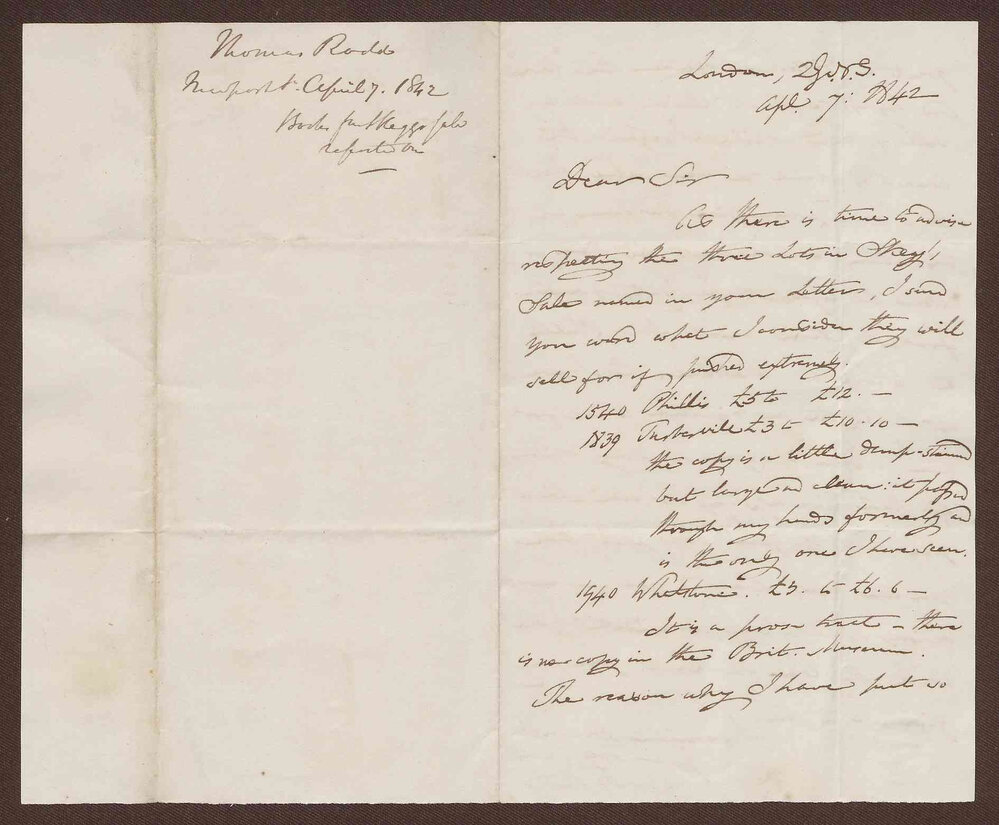 Thomas Rodd
Newport St. April 7. 1842
Books fm Skeggs sale
reported on
London, 
Apl. 7: 1842
Dear Sir
As there is time to advise
respecting the three Lots in Skegg's
Sale named in your Letter, I send
you word what I consider they will
sell for if pushed extremely.
1540 Phillis £5 to £12. —
1839 Turbervile £3 to £10.10 —
the copy is a little damp-stained
but large and clean: it passed
through my hands formerly and
is the only one I have seen.
1940 Whetstone. £3. to £6.6 —
It is a prose tract — there
is no copy in the Brit. Museum.
The reason why I have put so